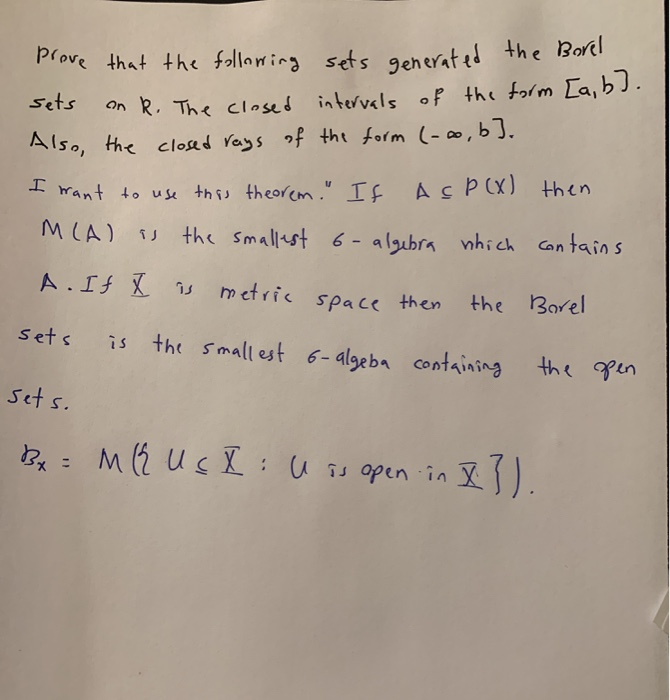 Prove that the following sets generated the Borel
sets on R. The closed intervals of the form [a,b].
Also, the closed rays of the form (-∞, b].
I want to use this theorem." If A ⊆ P(X) then
M(A) is the smallest 6-algebra which contains
A. If X is metric space then the Borel
sets is the smallest 6-algeba containing the open
sets.
Bx = M({ U ⊆ X : U is open in X }).